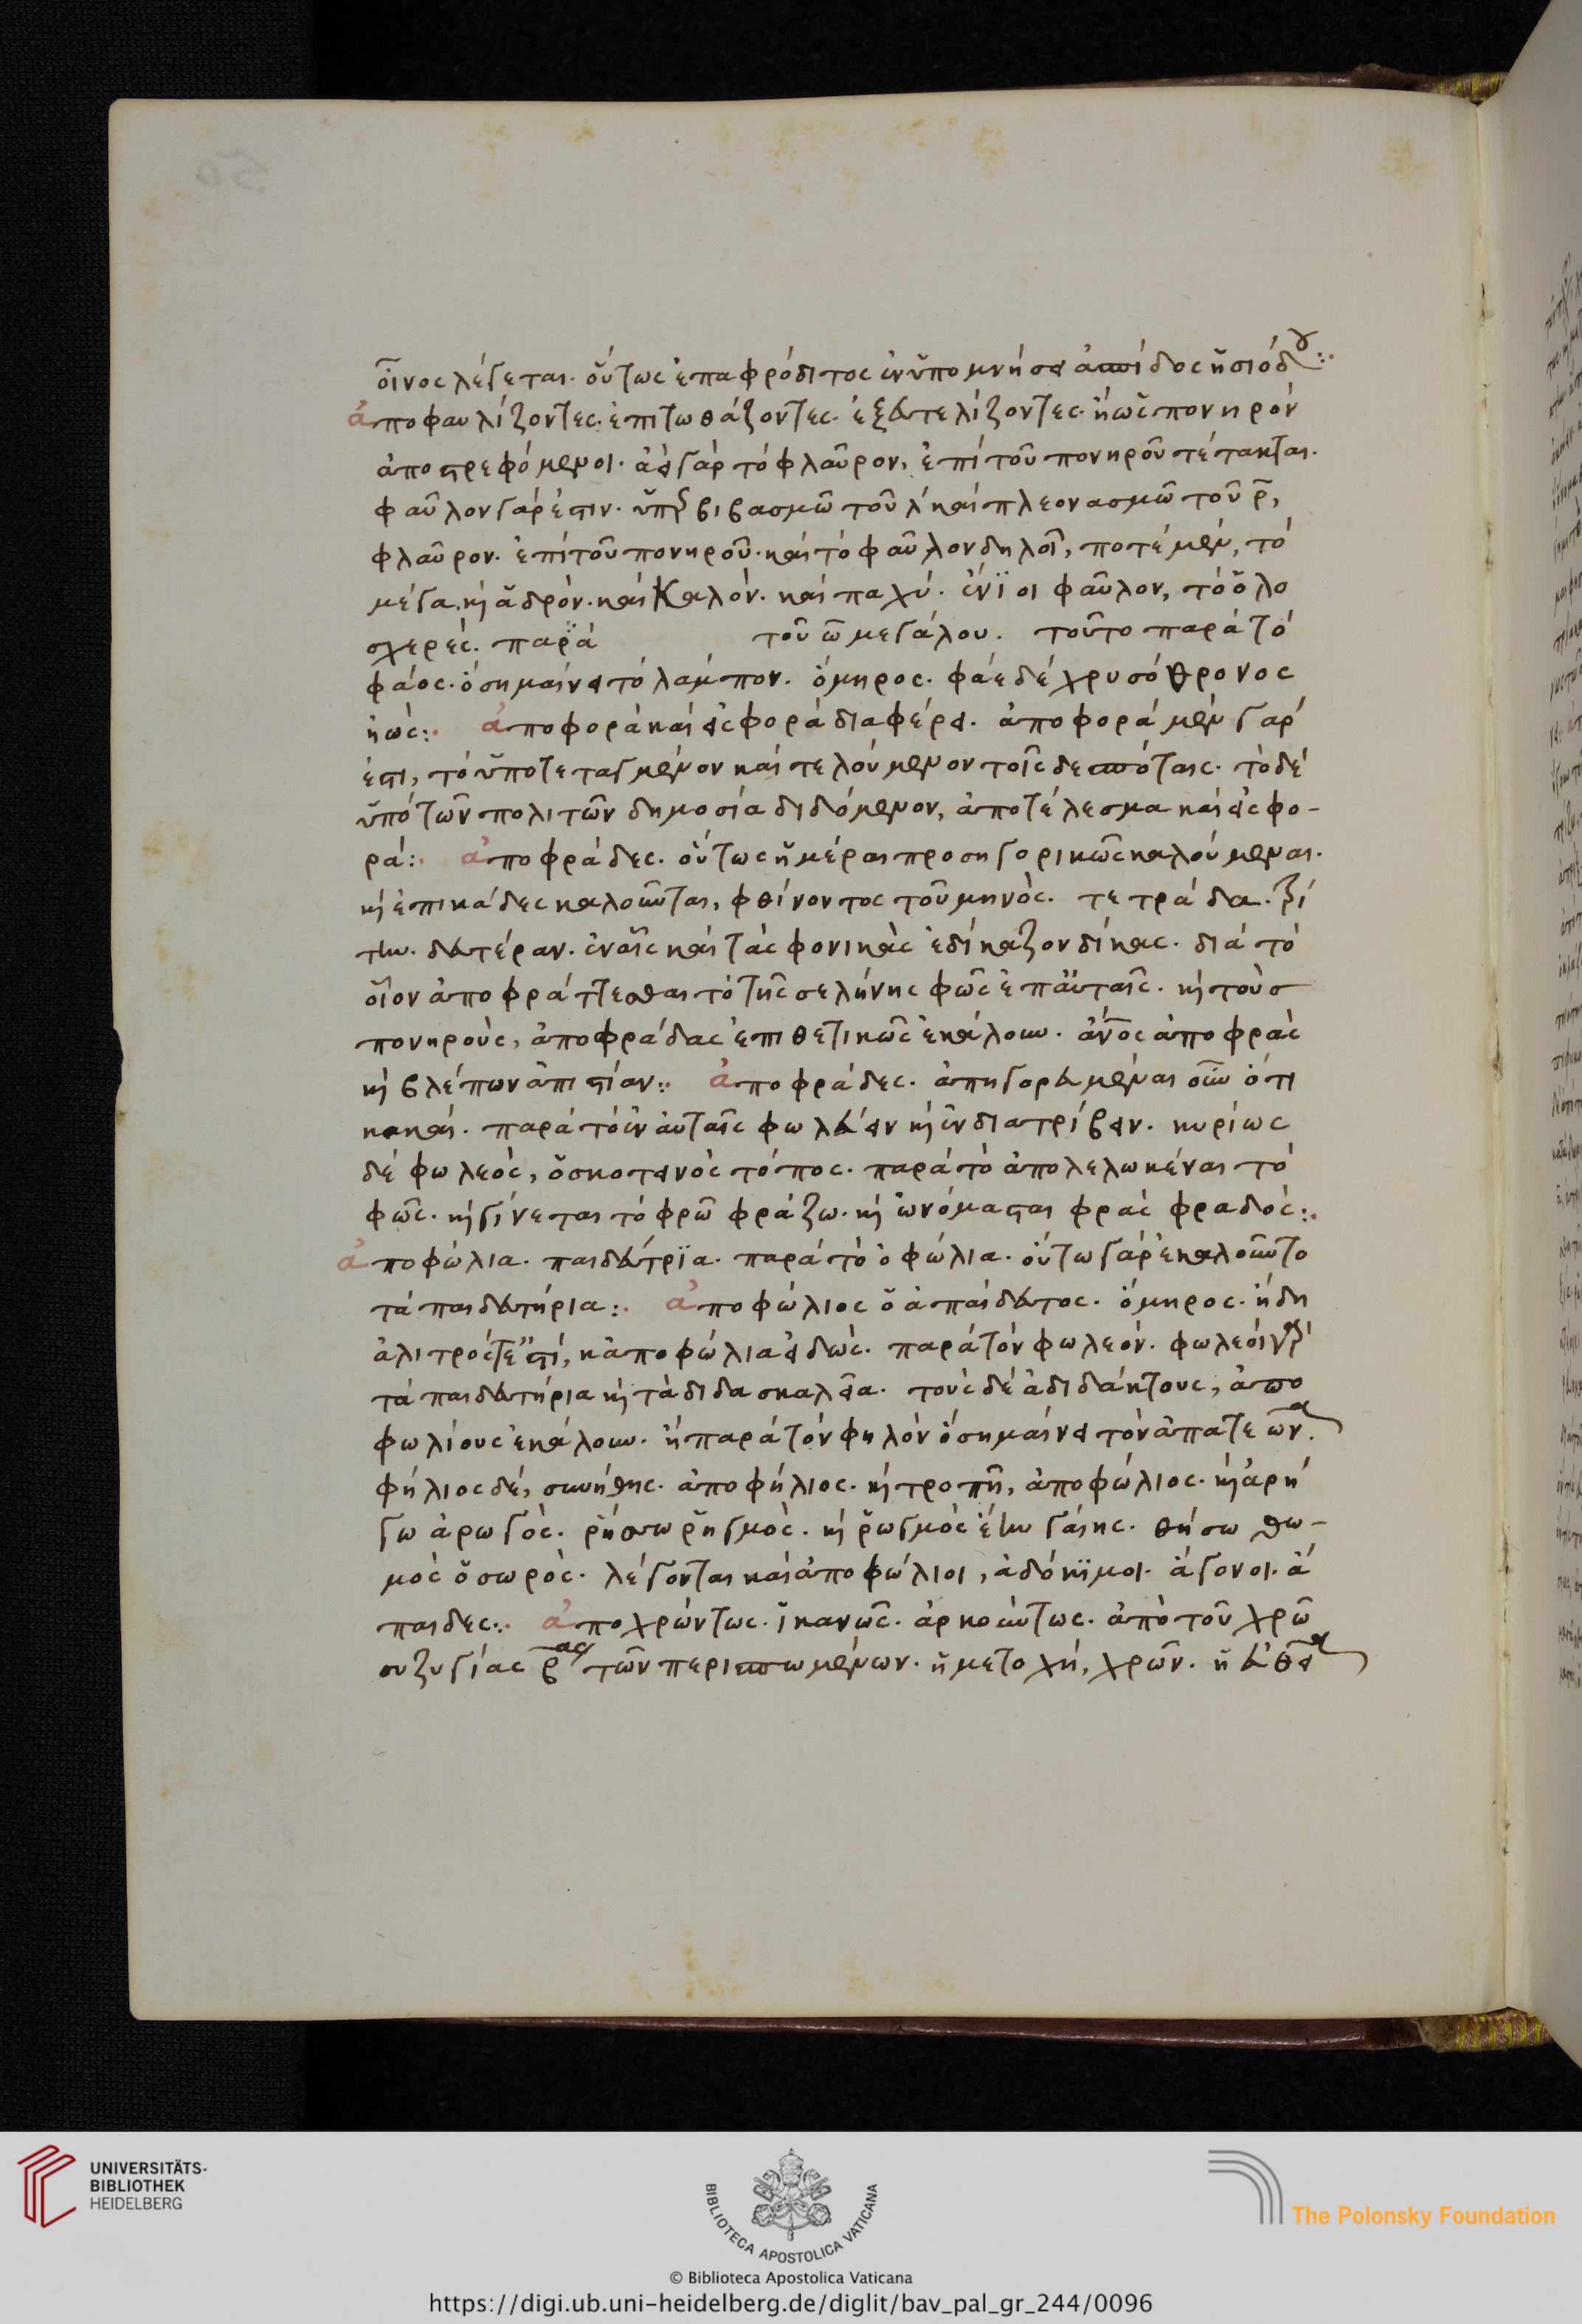 οἶνος λέγεται. οὕτως ἐπαφρόδιτος ἐν ὑπομνήσει ἀσπίδος ἡσιόδου:·
ἀποφαυλίζοντες. ἐπιτωθάζοντες. ἐξευτελίζοντες. ἢ ὡς πονηρὸν
ἀποστρεφόμενοι. ἀεὶ γὰρ τὸ φλαῦρον, ἐπὶ τοῦ πονηροῦ τέτακται.
φαῦλον γάρ ἐστιν. ὑπερβιβασμῶ τοῦ λ καὶ πλεονασμῶ τοῦ ρ,
φλαῦρον. ἐπὶ τοῦ πονηροῦ. καὶ τὸ φαῦλον δηλοῖ, ποτὲ μὲν, τὸ
μέγα. καὶ ἁδρόν. καὶ Καλόν. καὶ παχύ. ἔνϊοι φαῦλον, τὸ ὁλο
σχερές. παρὰ τοῦ ω μεγάλου. τοῦτο παρὰ τὸ
φάος. ὁ σημαίνει τὸ λαμπον. ὅμηρος. φάε δὲ χρυσόθρονος
ἠώς:· ἀποφορὰ καὶ εἰσφορὰ διαφέρει. ἀποφορὰ μὲν γάρ
ἐστι, τὸ ὑποτεταγμένον καὶ τελούμενον τοῖς δεσπόταις. τὸ δὲ
ὑπὸ τῶν πολιτῶν δημοσία διδόμενον, ἀποτέλεσμα καὶ εἰσφο-
ρά:· ἀποφράδες. οὕτως ἡμέραι προσηγορικῶς καλούμεναι.
καὶ ἐπικάδες καλοῦνται, φθίνοντος τοῦ μηνὸς. τετράδα. τρί
την. δευτέραν. ἐν αἷς καὶ τὰς φονικὰς ἐδίκαζον δίκας. διὰ τὸ
οἷον ἀποφράττεσθαι τὸ τῆς σελήνης φῶς ἐπ αὐταῖς. καὶ τοὺσ
πονηροὺς, ἀποφράδας ἐπιθετικῶς ἐκάλουν. ἄνος ἀποφρὰς
καὶ βλέπων ἀπιστίαν:· ἀποφράδες. ἀπηγορευμέναι οὖν ὅτι
κακαί. παρὰ τὸ ἐν αὐταῖς φωλεύειν καὶ ἐνδιατρίβειν. κυρίως
δὲ φωλεὸς, ὁ σκοτεινὸς τόπος. παρὰ τὸ ἀπολελωκέναι τὸ
φῶς. καὶ γίνεται τὸ φρῶ φράζω. καὶ ὠνόμασται φρὰς φραδός:·
ἀποφώλια. παιδεύτρϊα. παρὰ τὸ ὀφώλια. οὕτω γὰρ ἐκαλοῦντο
τὰ παιδευτήρια:· ἀποφώλιος ὁ ἀπαίδευτος. ὅμηρος. ἤδη
ἀλιτρός τ' ἐστί, κ ἀποφώλια εἰδώς. παρὰ τὸν φωλεόν. φωλεοὶ γὰρ
τὰ παιδευτήρια καὶ τὰ διδασκαλεῖα. τοὺς δὲ ἀδιδάκτους, ἀπο
φωλίους ἐκάλουν. ἢ παρὰ τὸν φηλὸν ὁ σημαίνει τὸν ἀπατεῶνα.
φήλιος δέ, συνήθης. ἀποφήλιος. καὶ τροπῆ, ἀποφώλιος. καὶ ἀρή
γω ἀρωγός. ῥήσσω ῥηγμὸς. καὶ ῥωγμὸς ἔην γαίης. θήσω θω-
μὸς ὁ σωρός. λέγονται καὶ ἀποφώλιοι, ἀδόκϊμοι. ἄγονοι. ἄ
παιδες:· ἀποχρώντως. ἱκανῶς. ἀρκούντως. ἀπὸ τοῦ χρῶ
συζυγίας βας τῶν περισπωμένων. ἡ μετοχή, χρῶν. ἡ εὐθεῖα
UNIVERSITÄTS-
BIBLIOTHEK
HEIDELBERG
BIBLIOTECA APOSTOLICA VATICANA
The Polonsky Foundation
© Biblioteca Apostolica Vaticana
https://digi.ub.uni-heidelberg.de/diglit/bav_pal_gr_244/0096